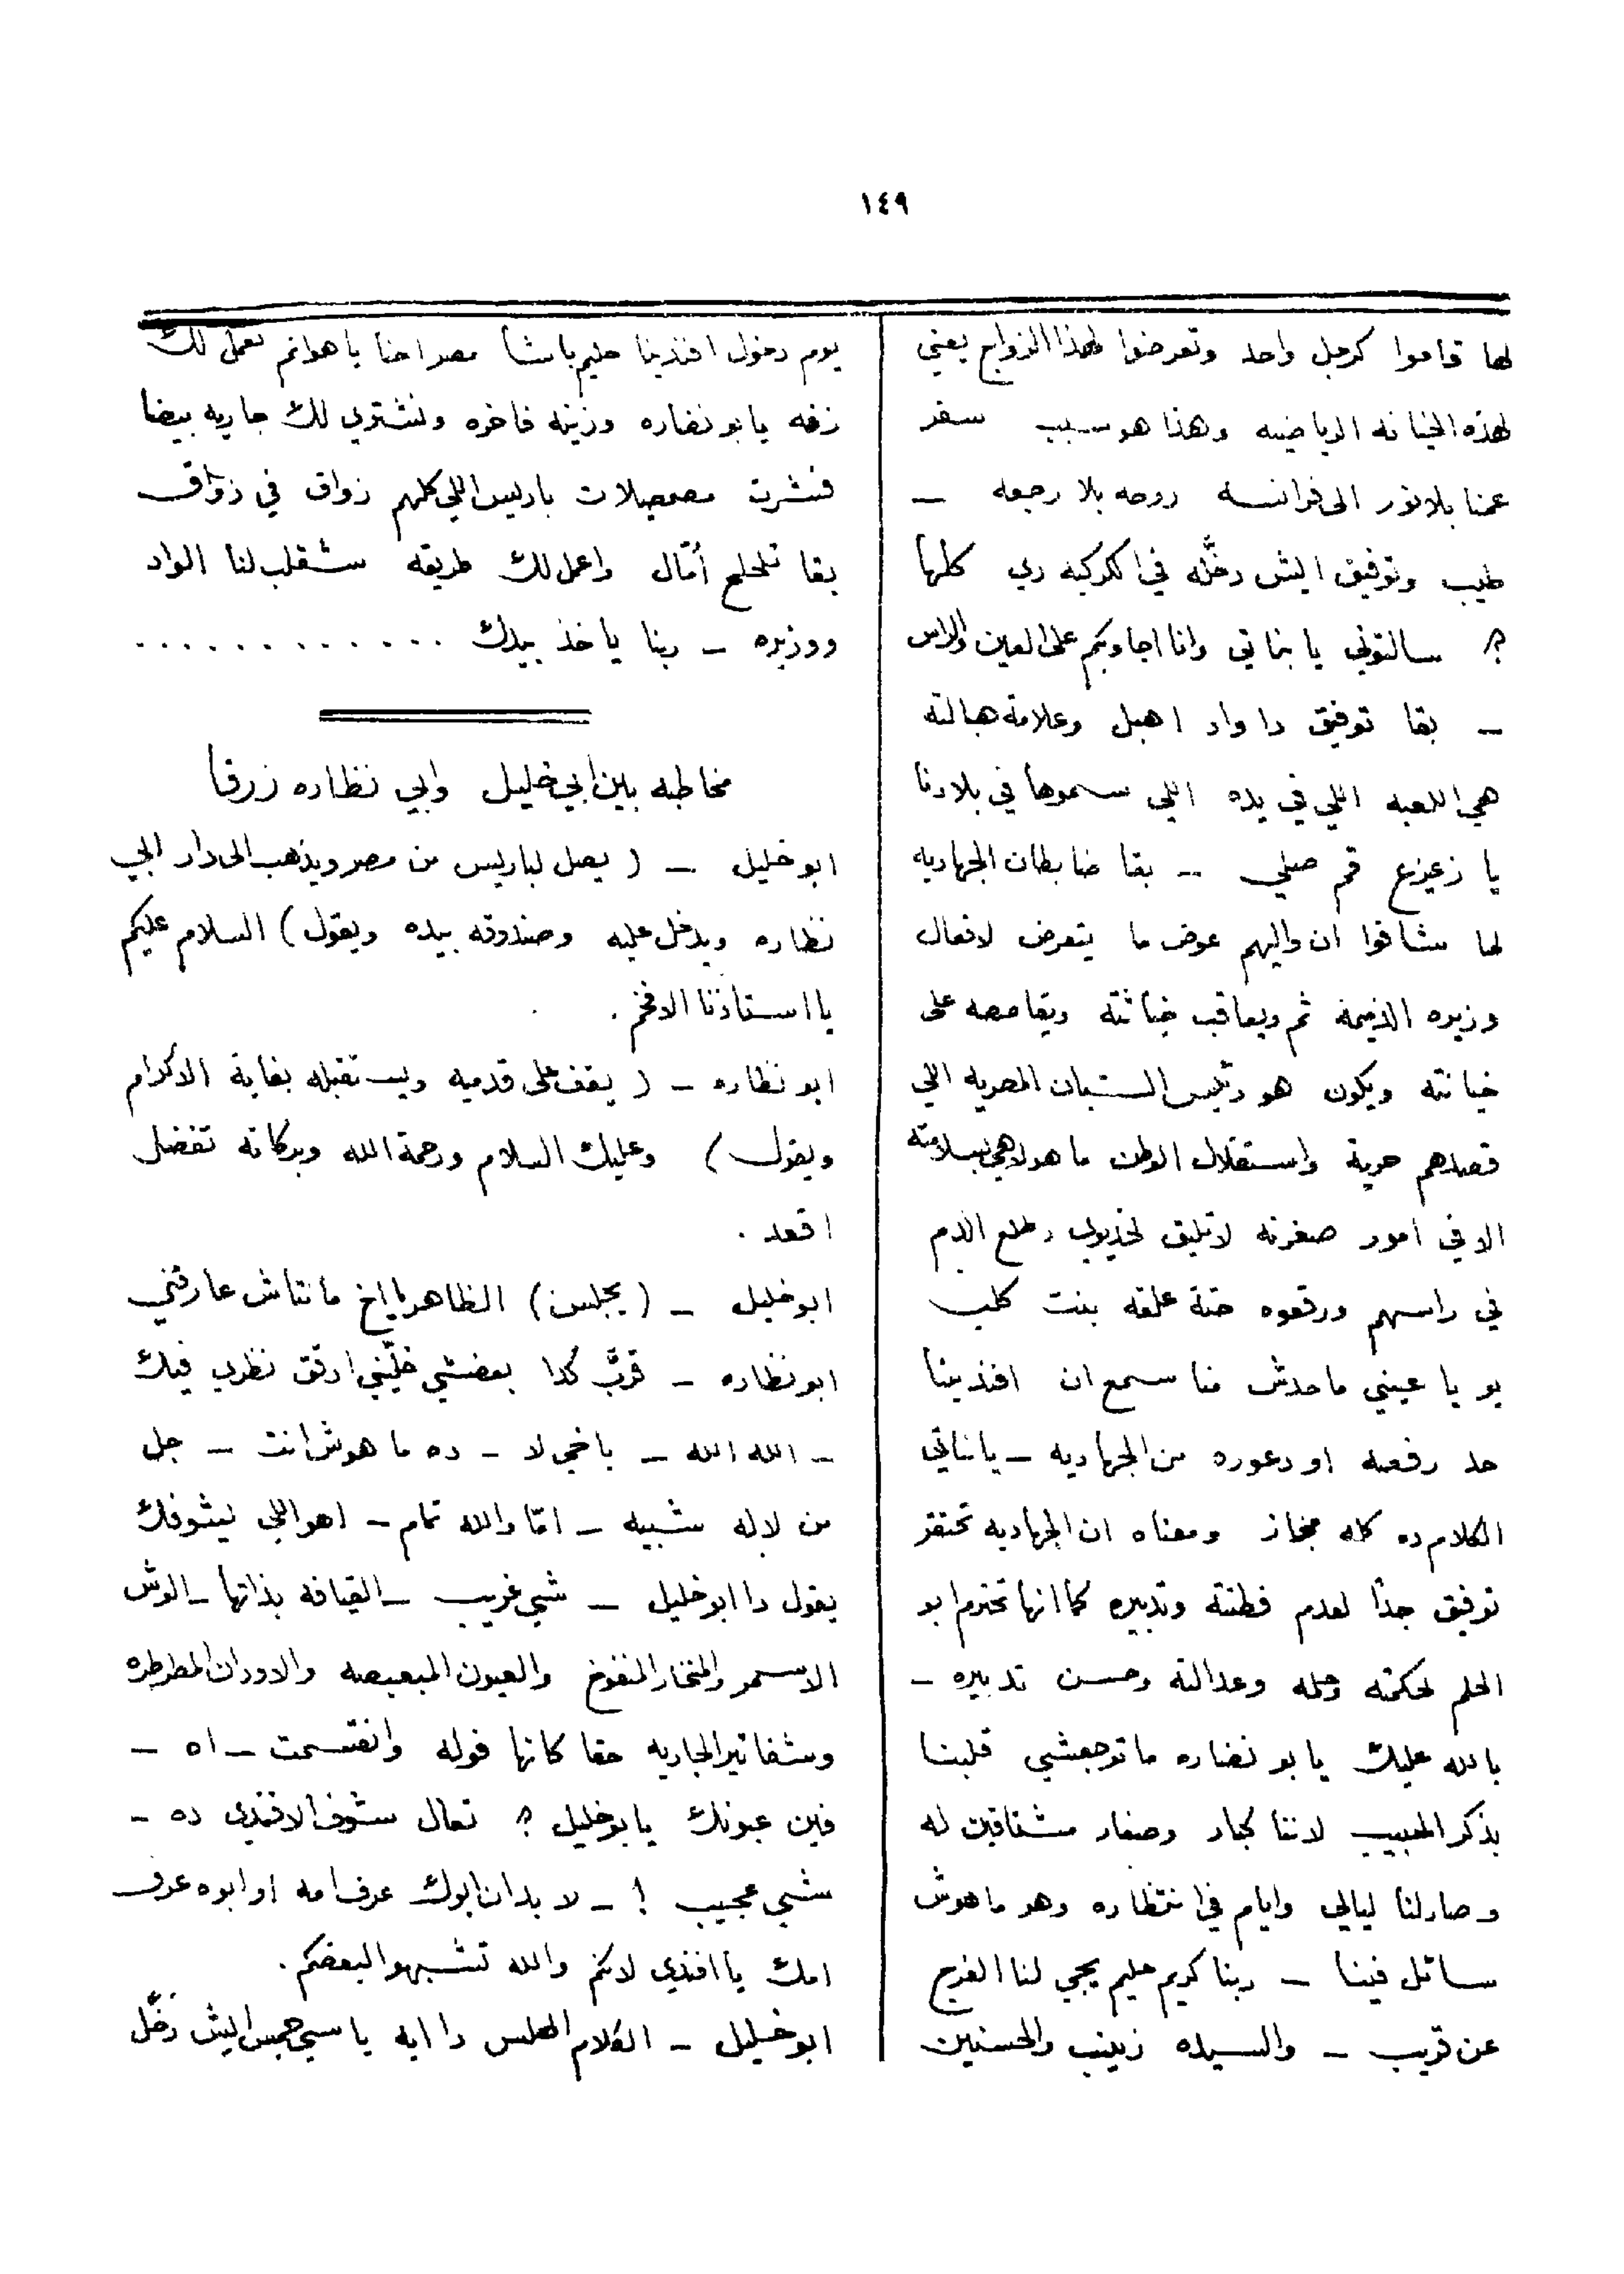 ١٤٩
لها قاموا كرجل واحد وتعرضوا لهذا الزواج يعني
لهذه الخيانه الرياضيه وهذا هو سبب سفر
عمنا بلانور الى فرانسه روحه بلا رجعه –
طيب وتوفيق ايش دخَّله في الكركبه دي كلها
؟ سالتوني يا بناتي وانا اجاوبكم على العين والراس
– بقا توفيق دا واد اهبل وعلامة هبالته
هي اللعبه اللي في يده اللي سموها في بلادنا
يا زعيزع قم صلي – بقا ضابطان الجهاديه
لما شافوا ان واليهم عوض ما يتعرض لافعال
وزيره الذميمة ثم ويعاقب خباثته ويقاصصه على
خيانته ويكون هو رئيس الشبان المصريه اللي
قصدهم حرية واستقلال الوطن ما هو لاهي بسلامته
الا في امور صغرنه لا تليق لخديوي طلع الدم
في راسهم ورقعوه حتة علقه بنت كلب
يو يا عيني ما حدش منا سمع ان افندينا
حد رقعه او دعوره من الجهاديه – يا بناتي
الكلام ده كله مجاز ومعناه ان الجهاديه تحتقر
توفيق جدًا لعدم فطنته وتدبيره كما انها تحترم ابو
الحلم لحكمته وحلمه وعدالته وحسن تدبيره –
بالله عليك يا بو نضاره ما توجعشي قلبنا
بذكر الحبيب لاننا كبار وصغار مشتاقين له
وصار لنا ليالي وايام في انتظاره وهو ما هوش
سائل فينا – ربنا كريم حليم يجي لنا الفرج
عن قريب – والسيده زينب والحسنين
يوم دخول افندينا حليم باشا مصر احنا يا هوانم نعمل لك
زفه يا بو نضاره وزينه فاخره ونشتري لك جاريه بيضا
فشرت مصمصلات باريس اللي كلهم زواق في زواق
بقا تلحلح أمّال واعمل لك طريقه شقلب لنا الواد
ووزيره – ربنا ياخذ بيدك . . . . . . . . . . . .
مخاطبه بين ابي خليل وابي نظاره زرقا
ابو خليل – ( يصل لباريس من مصر ويذهب الى دار ابي
نظاره ويدخل عليه وصندوقه بيده ويقول ) السلام عليكم
يا استاذنا الافخم .
ابو نظاره – ( يقف على قدميه ويستقبله بغاية الاكرام
ويقول ) وعليك السلام ورحمة الله وبركاته تفضل
اقعد .
ابو خليل – ( يجلس ) الظاهر يا اخ ما نتاش عارفني
ابو نظاره – قرَّب كدا بعضشي خلّيني ارقق نظري فيك
– الله الله – يا خي لا – ده ما هوش انت – جل
من لا له شبيه – امّا والله تمام – اهو اللي يشوفك
يقول دا ابو خليل – شي غريب – القيافه بذاتها – الوش
الاسمر والمنخار المنفوخ والعيون المبعبصه والاودان المطرطره
وشفاتير الجاريه حقا كانها فوله وانقسمت – اه –
فين عيونك يا بو خليل ؟ تعال شوف الافندي ده –
شي عجيب ! – لا بد ان ابوك عرف امه او ابوه عرف
امك يا افندي لانكم والله تشبهوا لبعضكم .
ابو خليل – الكلام الهلس دا ايه يا سي جمس ايش دخَّل